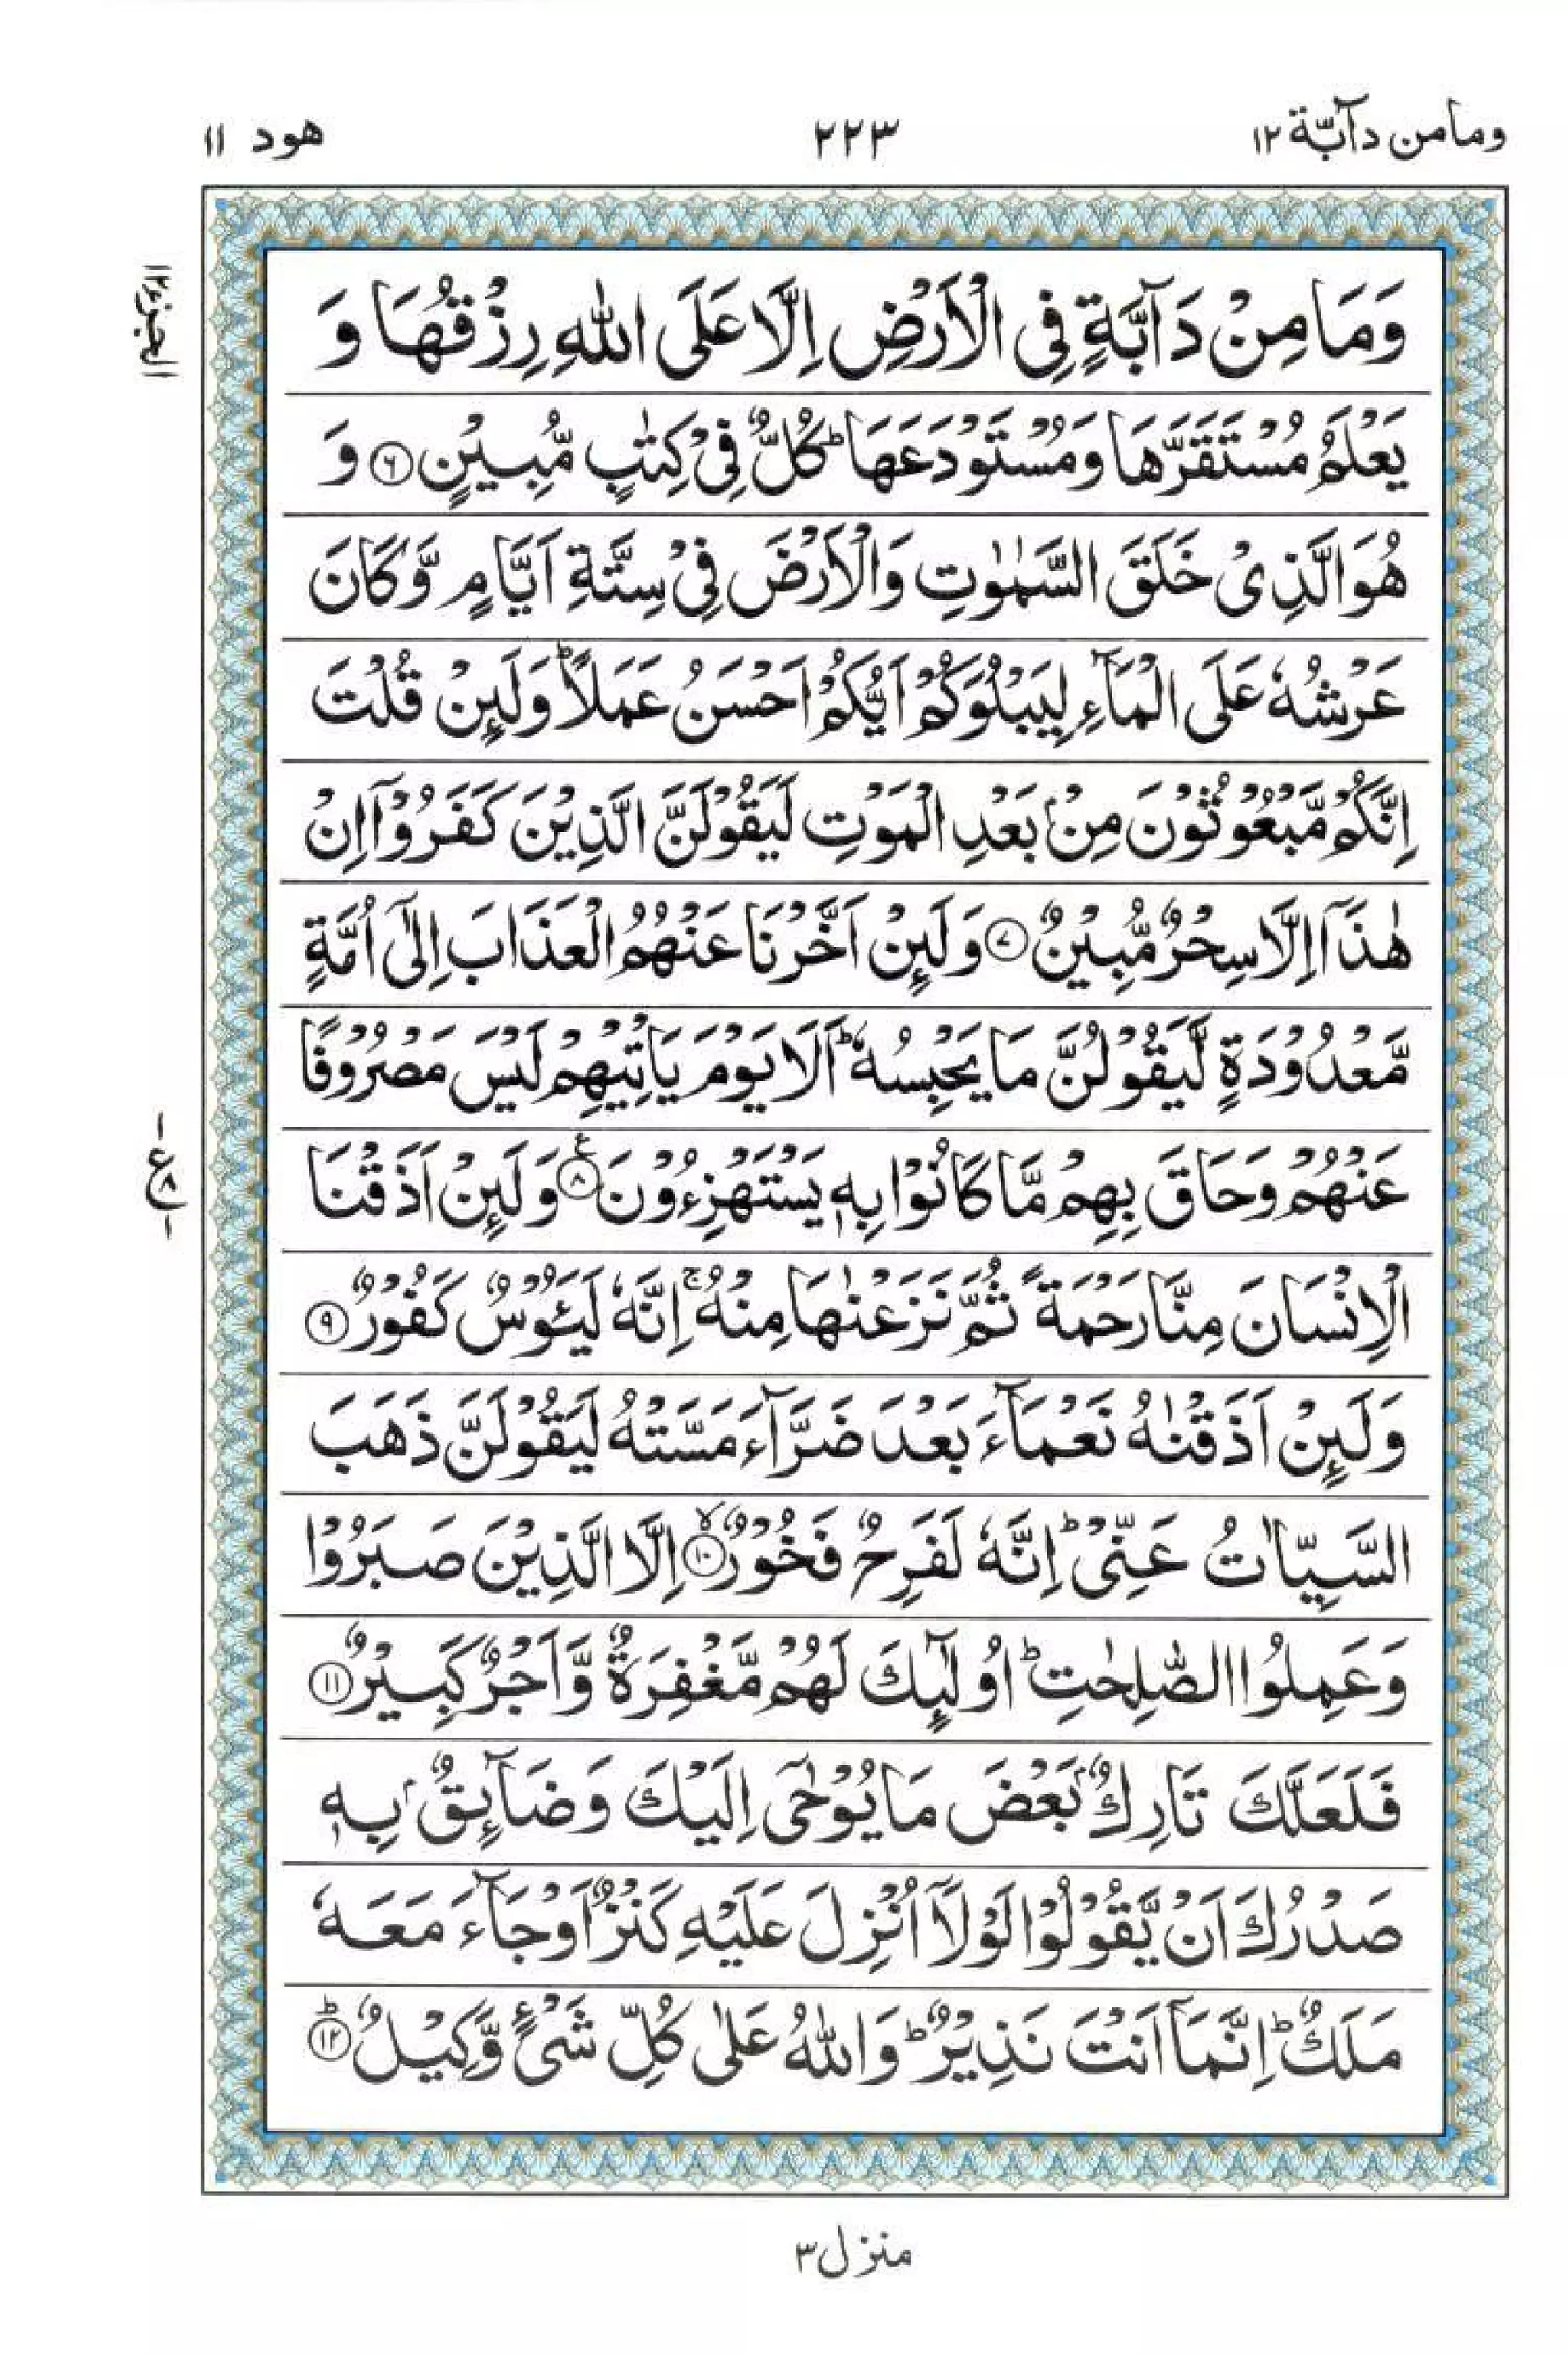 ومامن دآبّة ١٢
٢٢٣
هود ١١
الجزء ١٢
وَمَا مِنْ دَآبَّةٍ فِى الْاَرْضِ اِلَّا عَلَى اللّٰهِ رِزْقُهَا وَ
يَعْلَمُ مُسْتَقَرَّهَا وَمُسْتَوْدَعَهَا ؕ كُلٌّ فِىْ كِتٰبٍ مُّبِيْنٍ ۝٦ وَ
هُوَ الَّذِىْ خَلَقَ السَّمٰوٰتِ وَالْاَرْضَ فِىْ سِتَّةِ اَيَّامٍ وَّكَانَ
عَرْشُهٗ عَلَى الْمَآءِ لِيَبْلُوَكُمْ اَيُّكُمْ اَحْسَنُ عَمَلًا ؕ وَلَئِنْ قُلْتَ
اِنَّكُمْ مَّبْعُوْثُوْنَ مِنْۢ بَعْدِ الْمَوْتِ لَيَقُوْلَنَّ الَّذِيْنَ كَفَرُوْۤا اِنْ
هٰذَاۤ اِلَّا سِحْرٌ مُّبِيْنٌ ۝٧ وَلَئِنْ اَخَّرْنَا عَنْهُمُ الْعَذَابَ اِلٰٓى اُمَّةٍ
مَّعْدُوْدَةٍ لَّيَقُوْلُنَّ مَا يَحْبِسُهٗ ؕ اَلَا يَوْمَ يَاْتِيْهِمْ لَيْسَ مَصْرُوْفًا
عَنْهُمْ وَحَاقَ بِهِمْ مَّا كَانُوْا بِهٖ يَسْتَهْزِءُوْنَ ۝٨ۧ وَلَئِنْ اَذَقْنَا
ع ٨
الْاِنْسَانَ مِنَّا رَحْمَةً ثُمَّ نَزَعْنٰهَا مِنْهُ ۚ اِنَّهٗ لَيَئُوْسٌ كَفُوْرٌ ۝٩
وَلَئِنْ اَذَقْنٰهُ نَعْمَآءَ بَعْدَ ضَرَّآءَ مَسَّتْهُ لَيَقُوْلَنَّ ذَهَبَ
السَّيِّاٰتُ عَنِّىْ ؕ اِنَّهٗ لَفَرِحٌ فَخُوْرٌ ۝١٠ۙ اِلَّا الَّذِيْنَ صَبَرُوْا
وَعَمِلُوا الصّٰلِحٰتِ ؕ اُولٰٓئِكَ لَهُمْ مَّغْفِرَةٌ وَّاَجْرٌ كَبِيْرٌ ۝١١
فَلَعَلَّكَ تَارِكٌۢ بَعْضَ مَا يُوْحٰٓى اِلَيْكَ وَضَآئِقٌۢ بِهٖ
صَدْرُكَ اَنْ يَّقُوْلُوْا لَوْلَاۤ اُنْزِلَ عَلَيْهِ كَنْزٌ اَوْ جَآءَ مَعَهٗ
مَلَكٌ ؕ اِنَّمَاۤ اَنْتَ نَذِيْرٌ ؕ وَاللّٰهُ عَلٰى كُلِّ شَىْءٍ وَّكِيْلٌ ۝١٢ؕ
منزل ٣